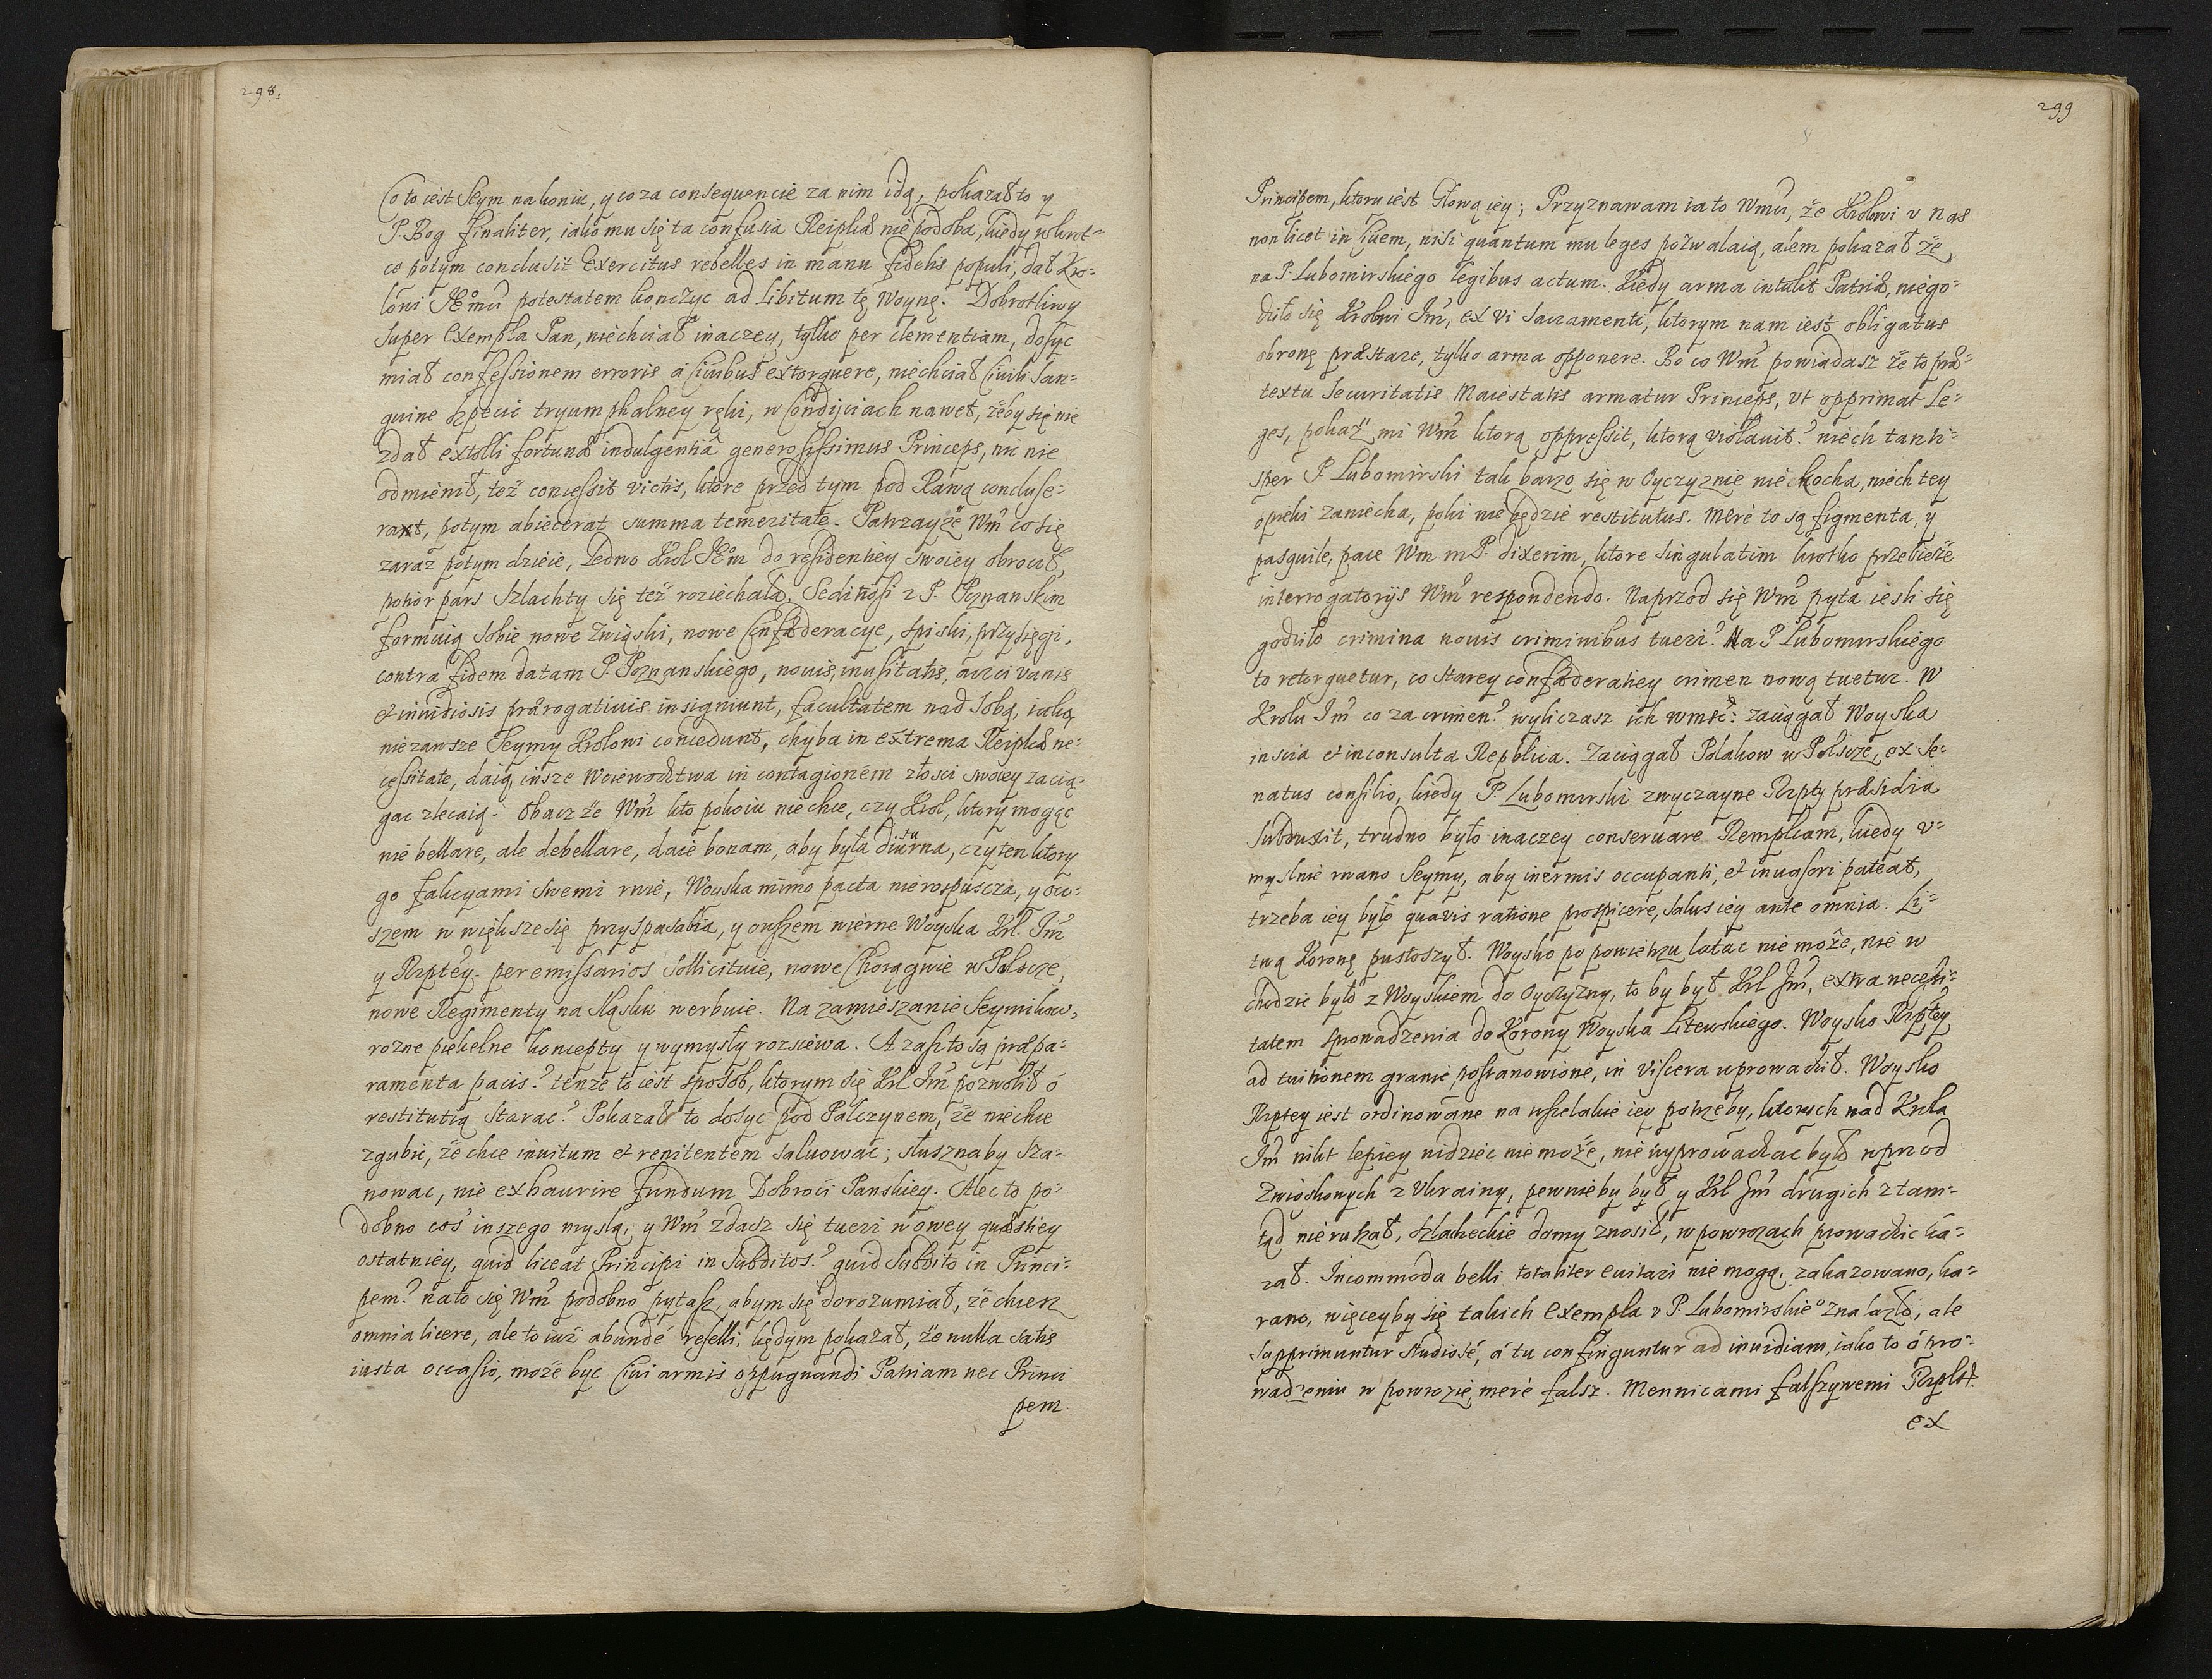 298.
Co to iest Seym na koniu, y co za consequencie za nim idą, pokazał to y
P. Bog finaliter, iako mu się ta confusia Reiplicæ nie podoba, kiedy wkrot-
ce potym conclusit exercitus rebelles in manu fidelis populi, dał Kro-
lowi Jemu potestatem konczyc ad libitum tę Woynę. Dobrotliwy
super exempla Pan, niechciał inaczey, tylko per clementiam, dosyc
miał confessionem erroris a Civibus extorquere, niechciał Civili San-
guine szpecic tryumphalney ręki, w Condijciach nawet, żeby się nie
zdał extolli fortunæ indulgentiâ generosissimus Princeps, nic nie
odmienił, też concessit victis, ktore przed tym pod Rawą concluse-
rant, potym abiecerat summa temeritate. Patrzayże Wm co się
zaraz potym dzieie, Ledwo Krol Jem do residentiey swoiey obrocił,
potior pars Szlachty się też roziechała, Seditiosi z P. Poznanskim
formuią sobie nowe związki, nowe Confæderacye, spiski, przysięgi,
contra fidem datam P. Poznanskiego, nouis, inusitatis, ac vanis
et inuidiosis prærogatiuis insigniunt, facultatem nad sobą, iaką
niezawsze Seymy Krolowi concedunt, chyba in extrema Reiplicæ ne-
cessitate, daią, insze Woiewodztwa in contagionem złosci swoiey zacią-
gac zlecaią. Obacz że Wm kto pokoiu niechce, czy Krol, ktory mogąc
nie bellare, ale debellare, daie bonam, aby była diuturna, czy ten ktory
go fakcyami swemi rwie, Woyska mimo pacta nierospuscza, y ow-
szem w większe się przyspasabia, y owszem wierne Woyska Krl Jm
y Rzptey. per emissarios sollicituie, nowe Chorągwie w Polscze,
nowe Regimenty na Sląsku werbuie. Na zamieszanie Seymikow,
rozne piekelne koncepty y wymysły rozsiewa. A zasz to są præpa-
ramenta pacis? tenze to iest sposob, ktorym się Krl Jm pozwolił o
restitutią starac? Pokazał to dosyc pod Palczynem, że niechce
zgubic, że chce inuitum et renitentem saluowac; słusznaby sza-
nowac, nie exhaurire fundum Dobroci Panskiey. Alec to po-
dobno cos inszego myslą, y Wm zdasz się tueri w owey quæstiey
ostatniey, quid liceat Principi in Subditos? quid Subdito in Princi-
pem? nato się Wm podobno pytasz, abym się dorozumiał, że chcesz
omnia licere, ale to iuż abundé refelli, kędym pokazał, że nulla satis
iusta occasio, może byc Ciui armis oppugnandi Patriam nec Princi
pem
299
Principem, ktory iest Głową iey; Przyznawam ia to Wmu, że Krolowi v nas
non licet in Ciuem, nisi quantum mu leges pozwalaią, alem pokazał że
na P. Lubomirskiego legibus actum. Kiedy arma intulit Patriæ, niego-
dziło się Krolowi Jm, ex vi sacramenti, ktorym nam iest obligatus
obronę præstare, tylko arma opponere. Bo co Wm powiadasz że to præ-
textu securitatis Maiestatis armatur Princeps, vt opprimat Le-
ges, pokaż mi Wm ktorą oppressit, ktorą violauit? niech tanti-
sper P Lubomirski tak barzo się w Oyczyznie nie kocha, niech tey
opieki zaniecha, poki nie będzie restitutus. Meré to są figmenta, y
pasquile, pace Wm mP. dixerim, ktore singulatim krotko przebieże
interrogatorijs Wm respondendo. Naprzod się Wm pyta iesli się
godziło crimina nouis criminibus tueri? Na P Lubomirskiego
to retorquetur, co starey confæderatiey crimen nową tuetur. W
Krolu Jm co za crimen? wyliczasz ich wmsc: zaciągał Woyska
inscia et inconsulta Repblica. Zaciągał Polakow w Polscze, ex Se-
natus consilio, kiedy P. Lubomirski zwyczayne Rzpty præsidia
subduxit, trudno było inaczey conseruare Rempliam, kiedy v-
myslnie rwano Seymy, aby inermis occupanti, et inuasori pateat,
trzeba iey było quavis ratione prospicere, salus iey ante omnia. Li-
twą Koronę pustoszył. Woysko po powietrzu latac nie może, nie w
chodzic było z Woyskiem do Oyczyzny, to by był Krl Jm, extra necessi-
tatem sprowadzenia do Korony Woyska Litewskiego. Woysko Rzptey
ad tuitionem granic postanowione, in viscera wprowadził. Woysko
Rzptey iest ordinowane na wszelakie iey potrzeby, ktorych nad Krola
Jm nikt lepiey widziec nie może, nie wyprowadzac było wprzod
Związkowych z Vkrainy, pewnieby był y Krl Jm drugich z tam-
tąd nieruszał, szlacheckie domy znosił, w powrozach prowadzic ka-
zał. Incommoda belli totaliter euitari nie mogą, zakazowano, ka-
rano, więceyby się takich exempla v P. Lubomirskiego znalazło, ale
supprimuntur studiosé, á tu confinguntur ad inuidiam, iako to ó pro-
wadzeniu w powrozie meré falsz. Mennicami falszywemi Rzplt
ex